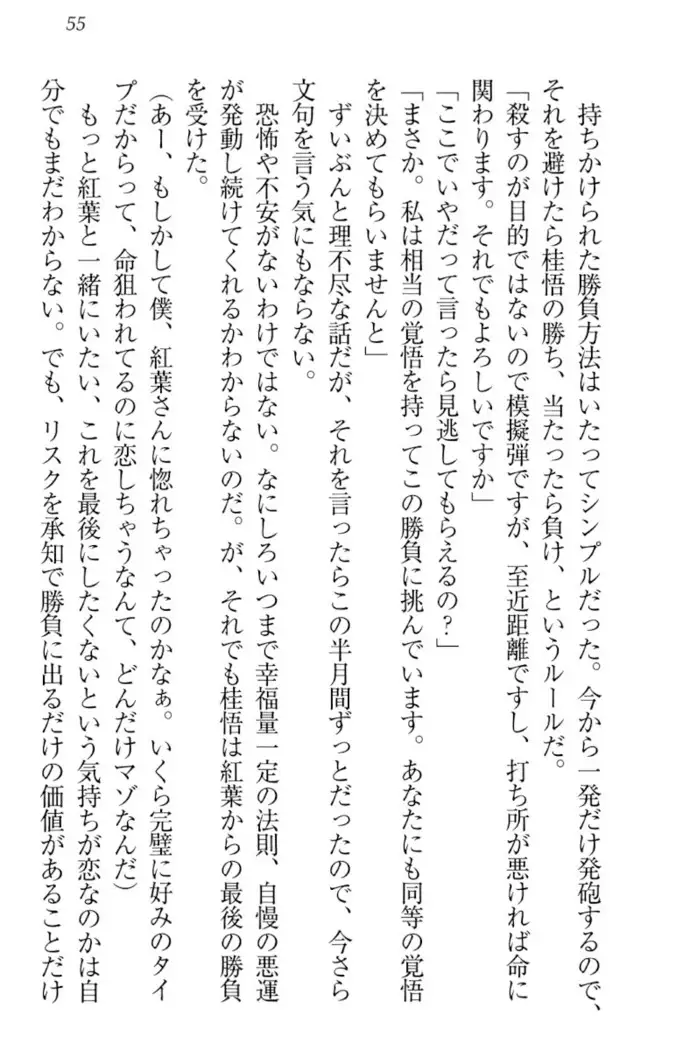 55
持ちかけられた勝負方法はいたってシンプルだった。今から一発だけ発砲するので、
それを避けたら桂悟の勝ち、当たったら負け、というルールだ。
「殺すのが目的ではないので模擬弾ですが、至近距離ですし、打ち所が悪ければ命に
関わります。それでもよろしいですか」
「ここでいやだって言ったら見逃してもらえるの?」
「まさか。私は相当の覚悟を持ってこの勝負に挑んでいます。あなたにも同等の覚悟
を決めてもらいませんと」
ずいぶんと理不尽な話だが、それを言ったらこの半月間ずっとだったので、今さら
文句を言う気にもならない。
恐怖や不安がないわけではない。なにしろいつまで幸福量一定の法則、自慢の悪運
が発動し続けてくれるかわからないのだ。が、それでも桂悟は紅葉からの最後の勝負
を受けた。
(あー、もしかして僕、紅葉さんに惚れちゃったのかなぁ。いくら完璧に好みのタイ
プだからって、命狙われてるのに恋しちゃうなんて、どんだけマゾなんだ)
もっと紅葉と一緒にいたい、これを最後にしたくないという気持ちが恋なのかは自
分でもまだわからない。でも、リスクを承知で勝負に出るだけの価値があることだけ